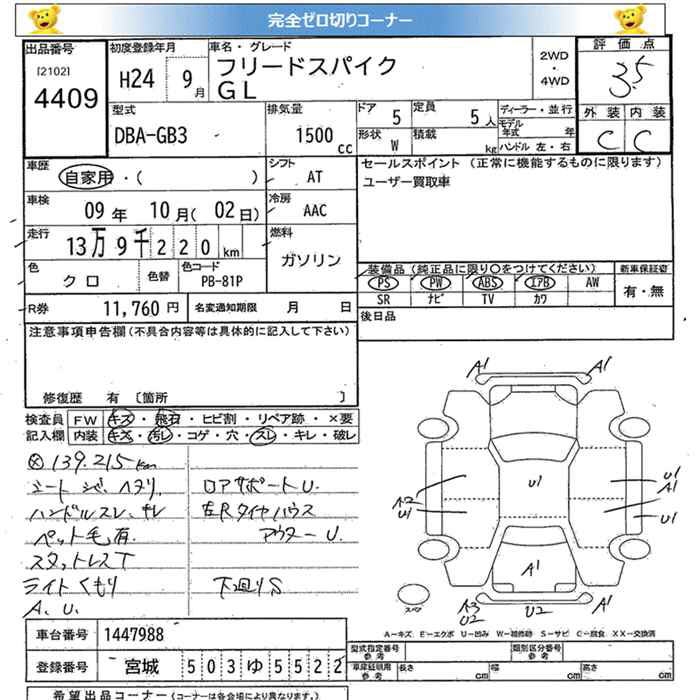 完全ゼロ切りコーナー
出品番号
[2102]
4409
初度登録年月
H24 9月
車名・グレード
フリードスパイク
GL
2WD
・
4WD
評価点
3.5
外装 内装
C C
型式
DBA-GB3
排気量
1500 cc
ドア 5
定員 5人
形状 W
積載 kg
ディーラー・並行
モデル年式 年
ハンドル 左・右
車歴
自家用・( )
シフト
AT
車検
09年 10月(02日)
冷房
AAC
走行
13万9千220km
燃料
ガソリン
色
クロ
色替
色コード
PB-81P
R券 11,760円
名変通知期限 月 日
セールスポイント (正常に機能するものに限ります)
ユーザー買取車
装備品(純正品に限り○をつけてください)
PS PW ABS エアB AW
SR ナビ TV カワ
新車保証書
有・無
後日品
注意事項申告欄(不具合内容等は具体的に記入して下さい)
修復歴 有 〔箇所 〕
検査員
記入欄
FW キズ・飛石・ヒビ割・リペア跡・×要
内装 キズ・汚レ・コゲ・穴・スレ・キレ・破レ
139,215km
ハンドルスレ、キレ
ペット毛有.
スタットレスT
ライトくもり
A.U.
ロアサポートU.
左Rタイヤハウス
アウターU.
下廻りS
A1 A1
U1
A2
U1
U1
A1
U1
A1
A3
U2
U2
A1
スペア
A-キズ E-エクボ U-凹み W-補修跡 S-サビ C-腐食 XX-交換済
車台番号 1447988
登録番号 宮城 503ゆ5522
型式指定番号
参考
類別区分番号
参考
車庫証明用
参考
長さ cm 幅 cm 高さ cm
希望出品コーナー(コーナーは各会場により異なります。)